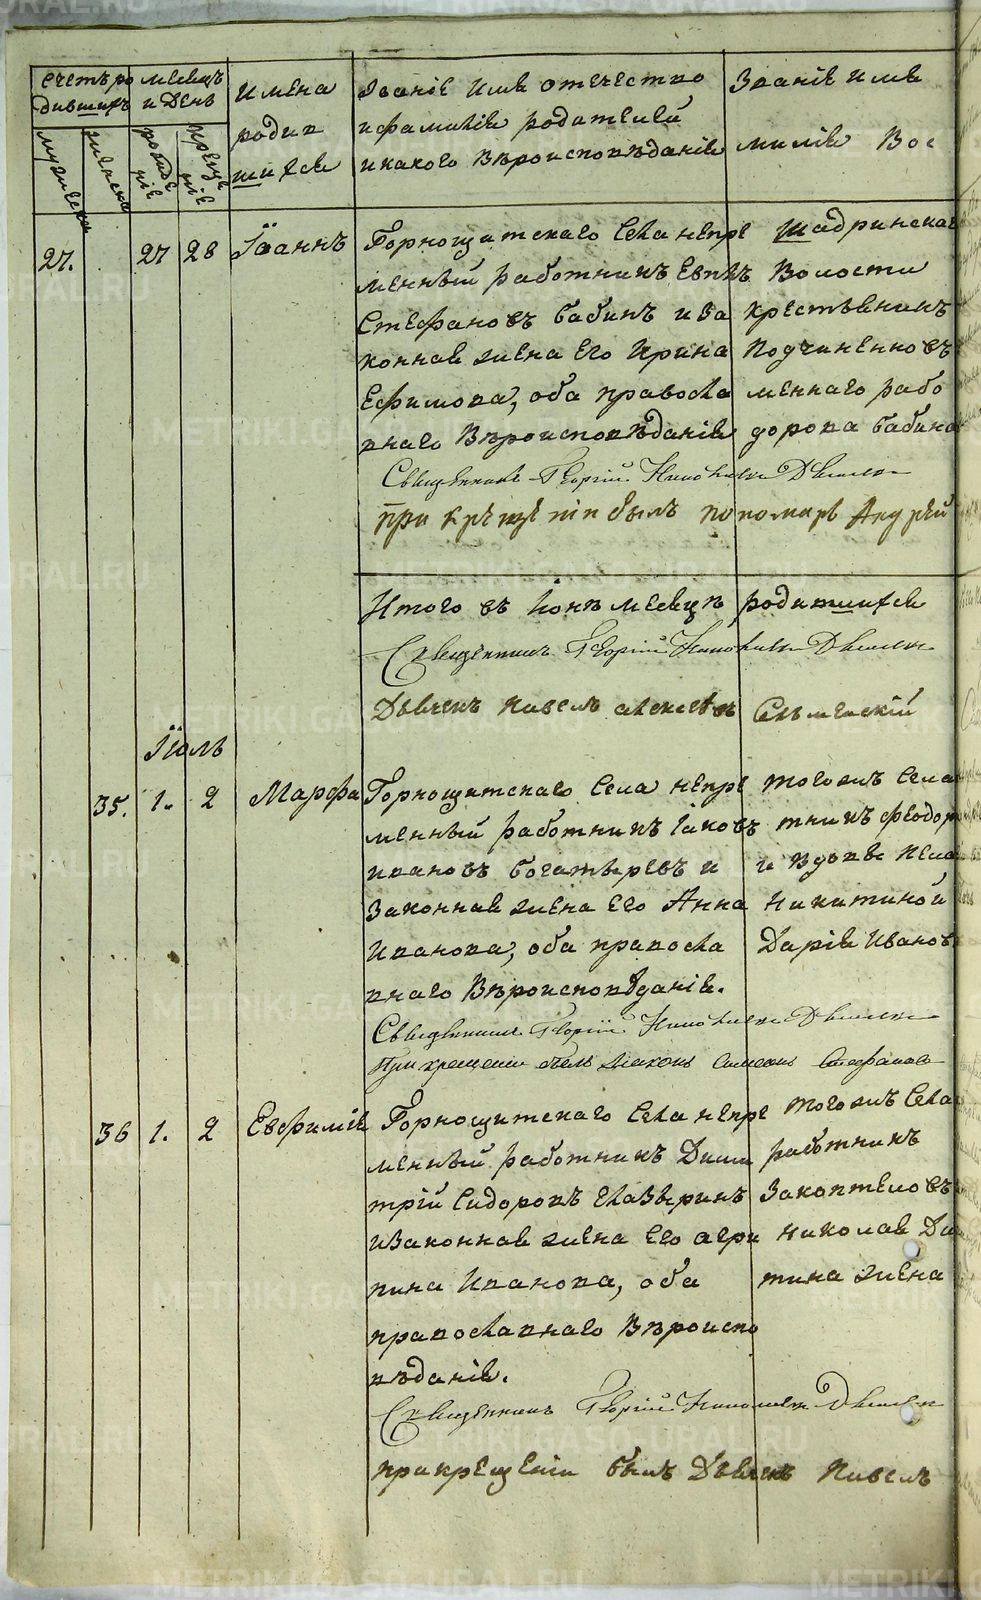 Счетъ ро
дивших
месяцъ
и День
Имена
родив
шихся
Званіе Имя отечество
и фамилія родителей
и какого Вѣроисповѣданія
Званіе имя
милія Вос
мужеска
женска
рожде
ніе
креще
ніе
27. 27 28 Іоаннъ
Горнощитскаго Села непре
менный работникъ Евпл
Стефановъ бабинъ и За
конная жена Его Ирина
Ефимова, оба правосла
внаго Вѣроисповѣданія
Шадринской
Волости
крестьянинъ
Подчиненновъ
меннаго рабо
дорова бабина
Священникъ Георгій
при крещеніи былъ пономарь Андрей
Итого въ Іюнѣ месяцѣ родившихся
Священникъ Георгій
Дьячекъ Павелъ Алексеевъ
Іюль
35. 1. 2 Марфа
Горнощитскаго Села непре
менный работникъ Іаковъ
ивановъ богатыревъ и
Законная жена Его Анна
Иванова, оба правосла
внаго Вѣроисповѣданія.
тогожъ Села
тникъ Феодор
и Вдове
Никитиной
Дарія Иванов
Священникъ Георгій
При крещении былъ диаконъ Симеонъ Стефановъ
36 1. 2 Евфимія
Горнощитскаго Села непре
менный работникъ Дими
трій Сидоровъ Елазаринъ
и Законная жена Его агри
пина Иванова, оба
православнаго Вѣроиспо
вѣданія.
тогожъ Села
работникъ
Закоптеловъ
Николая
тина жена
Священникъ Георгій
при крещеніи былъ Дьячекъ Павелъ
METRIKI.GASO-URAL.RU